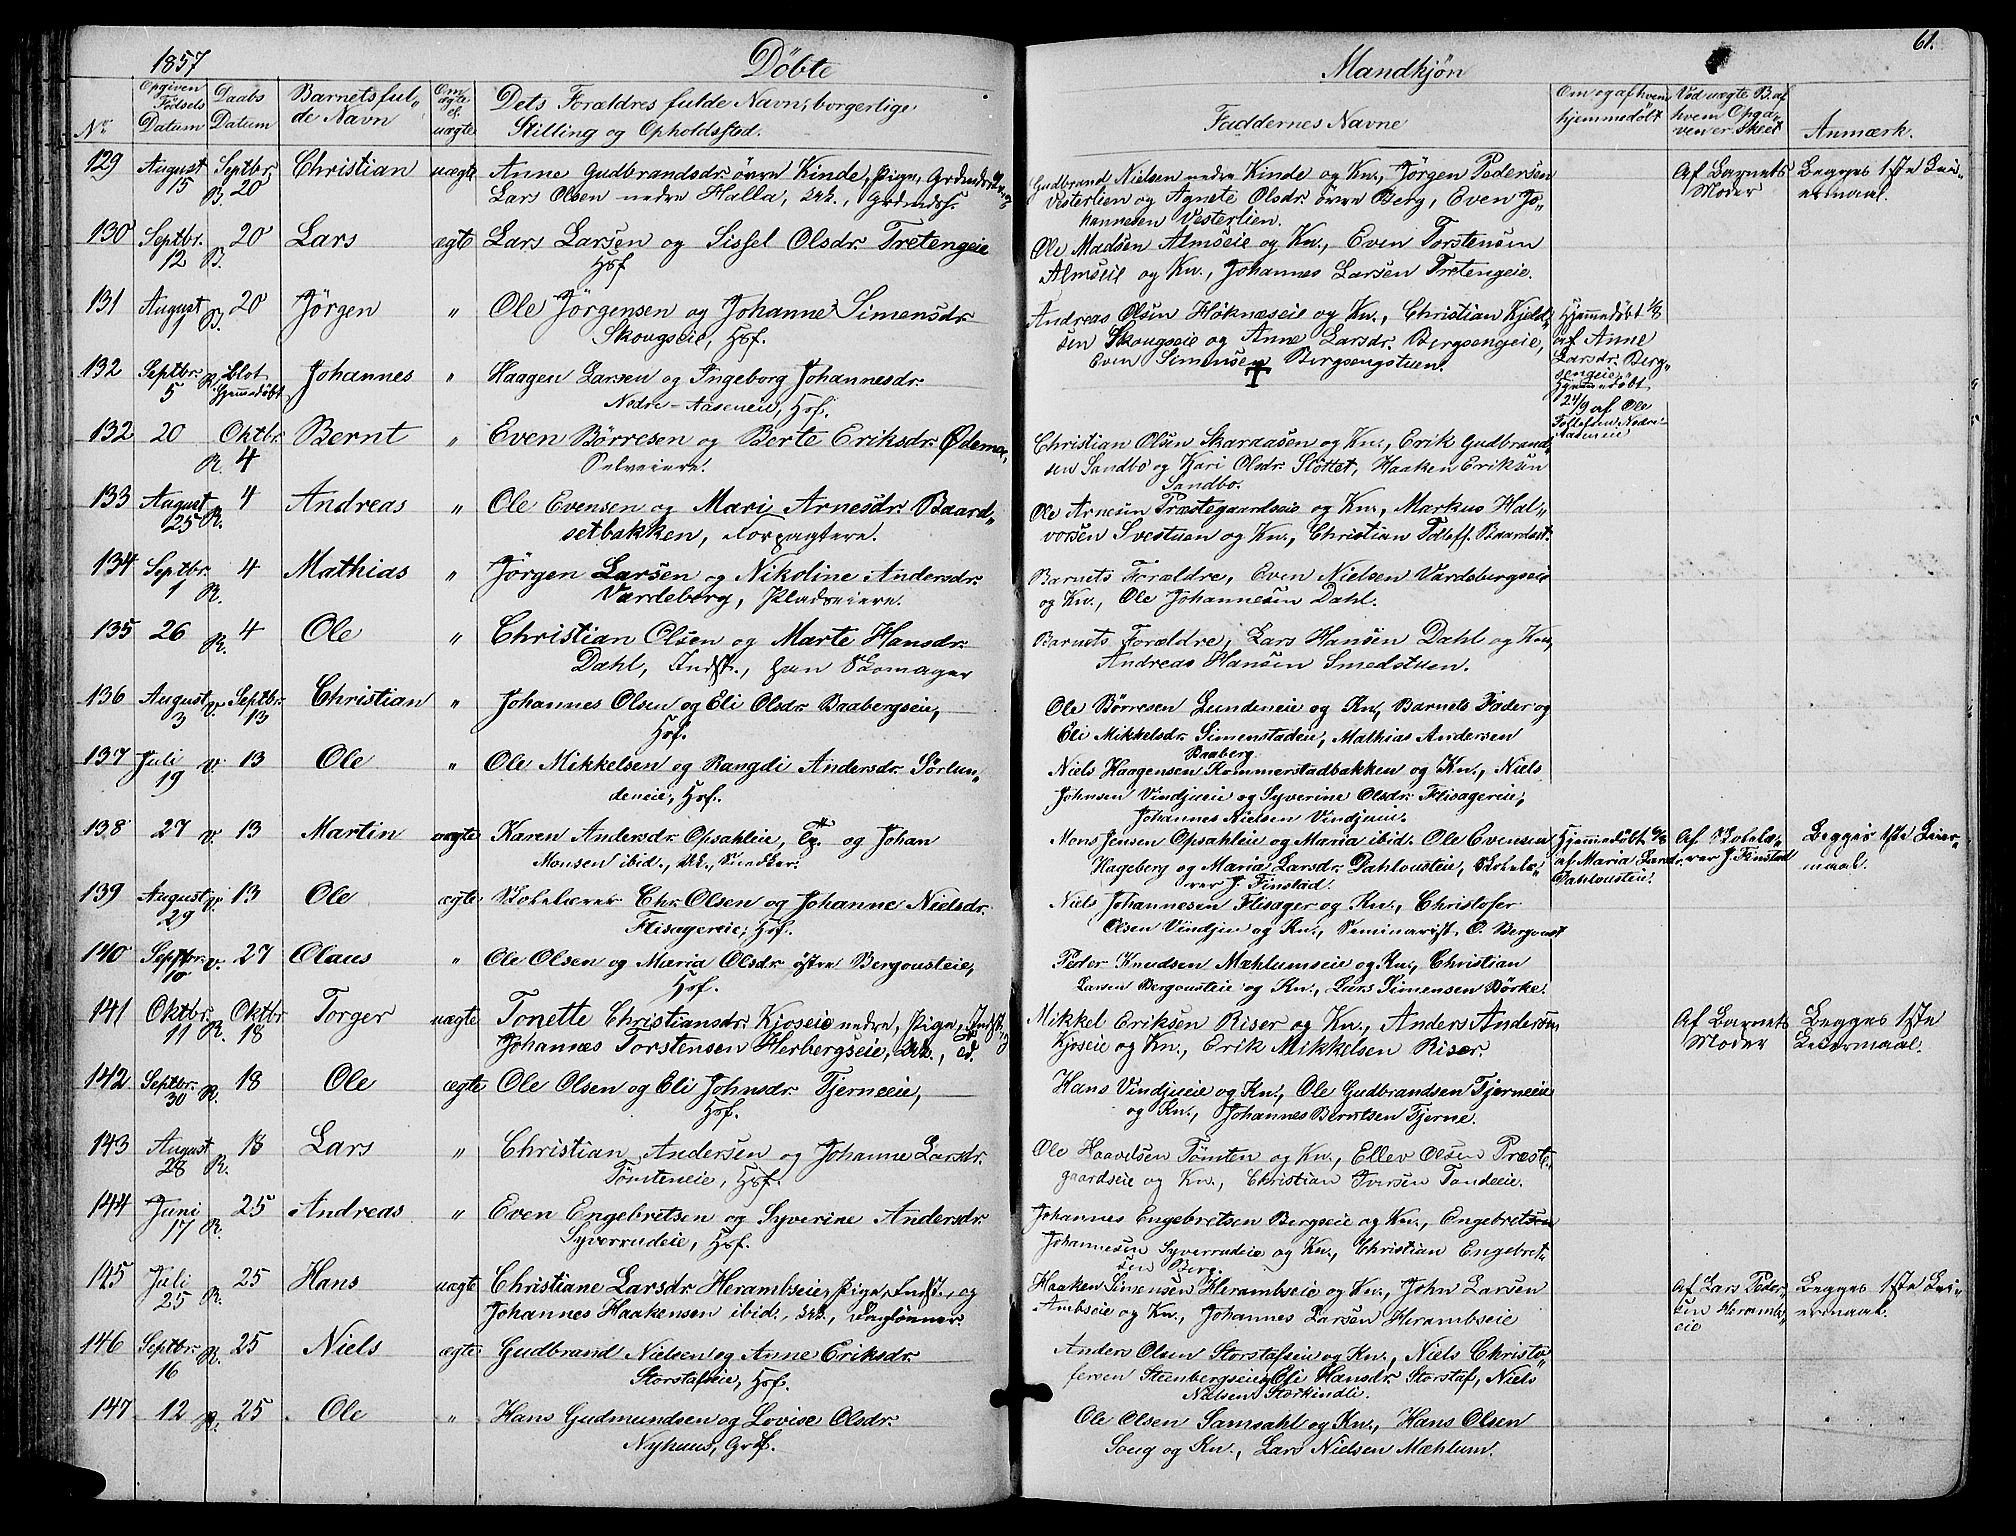 1857 Døbte Mandkjøn 61.
No Opgiven Fødsels Datum Daabs Datum Barnets ful- de Navn Om ægte el. uægte Dets Forældres fulde Navn, borgerlige Stilling og Opholdssted. Faddernes Navne Om og af hvem hjemmedøbt Ved uægte B. af hvem Opgi- ven er skeet Anmærk.
129 August 15 Septbr. B. 20 Christian uægte Anne Gudbrandsdr. øvre Kinde, Pige,
Lars Olsen nedre Halla, Grdmdsf.
Gudbrand Nielsen nedre Kinde og Kn., Jörgen Pedersen
Vesterlien og Agnete Olsdr. øvre Berg, Even Jo-
hannesen Vesterlien.
Af Barnets Moder
Begges 1ste Lei-
ermaal.
130 Septbr. 12 B. 20 Lars ægte Lars Larsen og Sissel Olsdr. Tretengeie
Hsf
Ole Madsen Almseie og Kn., Even Torstensen
Almseie og Kn., Johannes Larsen Tretengeie.
131 August 1 B. 20 Jörgen " Ole Jörgensen og Johanne Simensdr.
Skougseie, Hsf.
Andreas Olsen Høknæseie og Kn., Christian Kjeld-
sen Skougseie og Anne Larsdr. Bergsengeie,
Even Simensen Bergsengstuen.
Hjemmedøbt 1/8
af Anne
Larsdr. Berg-
sengeie.
132 Septbr. 5 R. blot Hjemmedøbt Johannes " Haagen Larsen og Ingeborg Johannesdr.
Nedre-Aaseneie, Hsf.
†
Hjemmedøbt
24/9 af Ole
Tollefsen Nedre-
Aaseneie
132 20 Oktbr. R. 4 Bernt " Even Börresen og Berte Eriksdr. Ødemo,
Selveiere.
Christian Olsen Skaraasen og Kn., Erik Gudbrand-
sen Sandbo og Kari Olsdr. Slöttet, Haaken Eriksen
Sandbo.
133 August 25 R. 4 Andreas " Ole Evensen og Mari Arnesdr. Baard-
setbakken, Forpagtere.
Ole Arnesen Præstegaardseie og Kn., Markus Hal-
vorsen Svestuen og Kn., Christian Tollefs. Baardset.
134 Septbr. 1 R. 4 Mathias " Jörgen Larsen og Nikoline Andersdr.
Vardeborg, Pladseiere.
Barnets Forældre, Even Nielsen Vardebergseie
og Kn., Ole Johannesen Dahl.
135 26 R. 4 Ole " Christian Olsen og Marte Hansdr.
Dahl, Indst., han Skomager
Barnets Forældre, Lars Hansen Dahl og Kn,
Andreas Hansen Smedstuen.
136 August 3 V. Septbr. 13 Christian " Johannes Olsen og Eli Olsdr. Baabergseie,
Hsf.
Ole Börresen Lundeneie og Kn, Barnets Fader og
Eli Mikkelsdr. Simenstadeie, Mathias Andersen
Baaberg.
137 Juli 19 V. 13 Ole " Ole Mikkelsen og Rangdi Andersdr. Sörlun-
deneie, Hsf.
Niels Haagensen Kommerstadbakken og Kn., Niels
Johnsen Vindjueie og Syverine Olsdr. Flisagereie,
Johannes Nielsen Vindjueie.
138 27 V. 13 Martin uægte Karen Andersdr. Opsahleie, Tj. og Johan
Monsen ibid., Snedker.
Mons Jensen Opsahleie og Maria ibid. Ole Evensen
Hageberg og Maria Larsdr. Dahlousteie, Skolelæ-
rer J. Finstad.
Hjemmedøbt
af Maria Larsdr.
Dahlousteie.
Af Skolelæ-
rer J. Finstad
Begges 1ste Leier-
maal.
139 August 29 V. 13 Ole ægte Skolelærer Chr. Olsen og Johanne Nielsdr.
Flisagereie, Hsf.
Niels Johannesen Flisager og Kn., Christofer
Olsen Vindjue og Kn., Seminarist O. Bergoust
140 Septbr. 10 V. 27 Olaus " Ole Olsen og Maria Olsdr. østre Bergousteie,
Hsf.
Peder Knudsen Mæhlumseie og Kn., Christian
Larsen Bergousteie og Kn., Lars Simensen Börke.
141 Oktbr. 11 R. Oktbr. 18 Torger uægte Tonette Christiansdr. Kjoseie nedre, Pige, Indst.
Johannes Torstensen Herbergseie,
Mikkel Eriksen Riser og Kn., Anders Andersen
Kjoseie og Kn., Erik Mikkelsen Riser.
Af Barnets Moder
Begges 1ste
Leiermaal.
142 Septbr. 30 R. 18 Ole ægte Ole Olsen og Eli Johnsdr. Tjerneeie,
Hsf.
Hans Vindjueie og Kn., Ole Gudbrandsen Tjerneeie
og Kn., Johannes Berntsen Tjerne.
143 August 28 R. 18 Lars " Christian Andersen og Johanne Larsdr.
Tömteneie, Hsf.
Ole Haavelsen Tömten og Kn., Ellev Olsen Præste-
gaardseie og Kn., Christian Iversen Tandeeie.
144 Juni 17 R. 25 Andreas " Even Engebretsen og Syverine Andersdr.
Syverrudeie, Hsf.
Johannes Engebretsen Bergseie og Kn., Engebretsen
Johannesen Syverrudeie og Kn., Christian Engebret-
sen Berg.
145 Juli 25 R. 25 Hans uægte Christiane Larsdr. Herambseie, Pige, Indst., og
Johannes Haakensen ibid., Daglønner.
Haaken Simensen Herambseie og Kn., John Larsen
Ambseie og Kn., Johannes Larsen Herambseie
Af Lars Peder-
sen Heramb-
eie
Begges 1ste Lei-
ermaal.
146 Septbr. 16 R. 25 Niels ægte Gudbrand Nielsen og Anne Eriksdr.
Storstafseie, Hsf.
Anders Olsen Storstafseie og Kn., Niels Christo-
fersen Steenbergseie, Eli Hansdr. Storstaf, Niels
Nielsen Storkindli.
147 12 R. 25 Ole " Hans Gudmundsen og Lovise Olsdr.
Nyhuus, Grdf.
Ole Olsen Samsahl og Kn., Hans Olsen
Soug og Kn., Lars Nielsen Mæhlum.